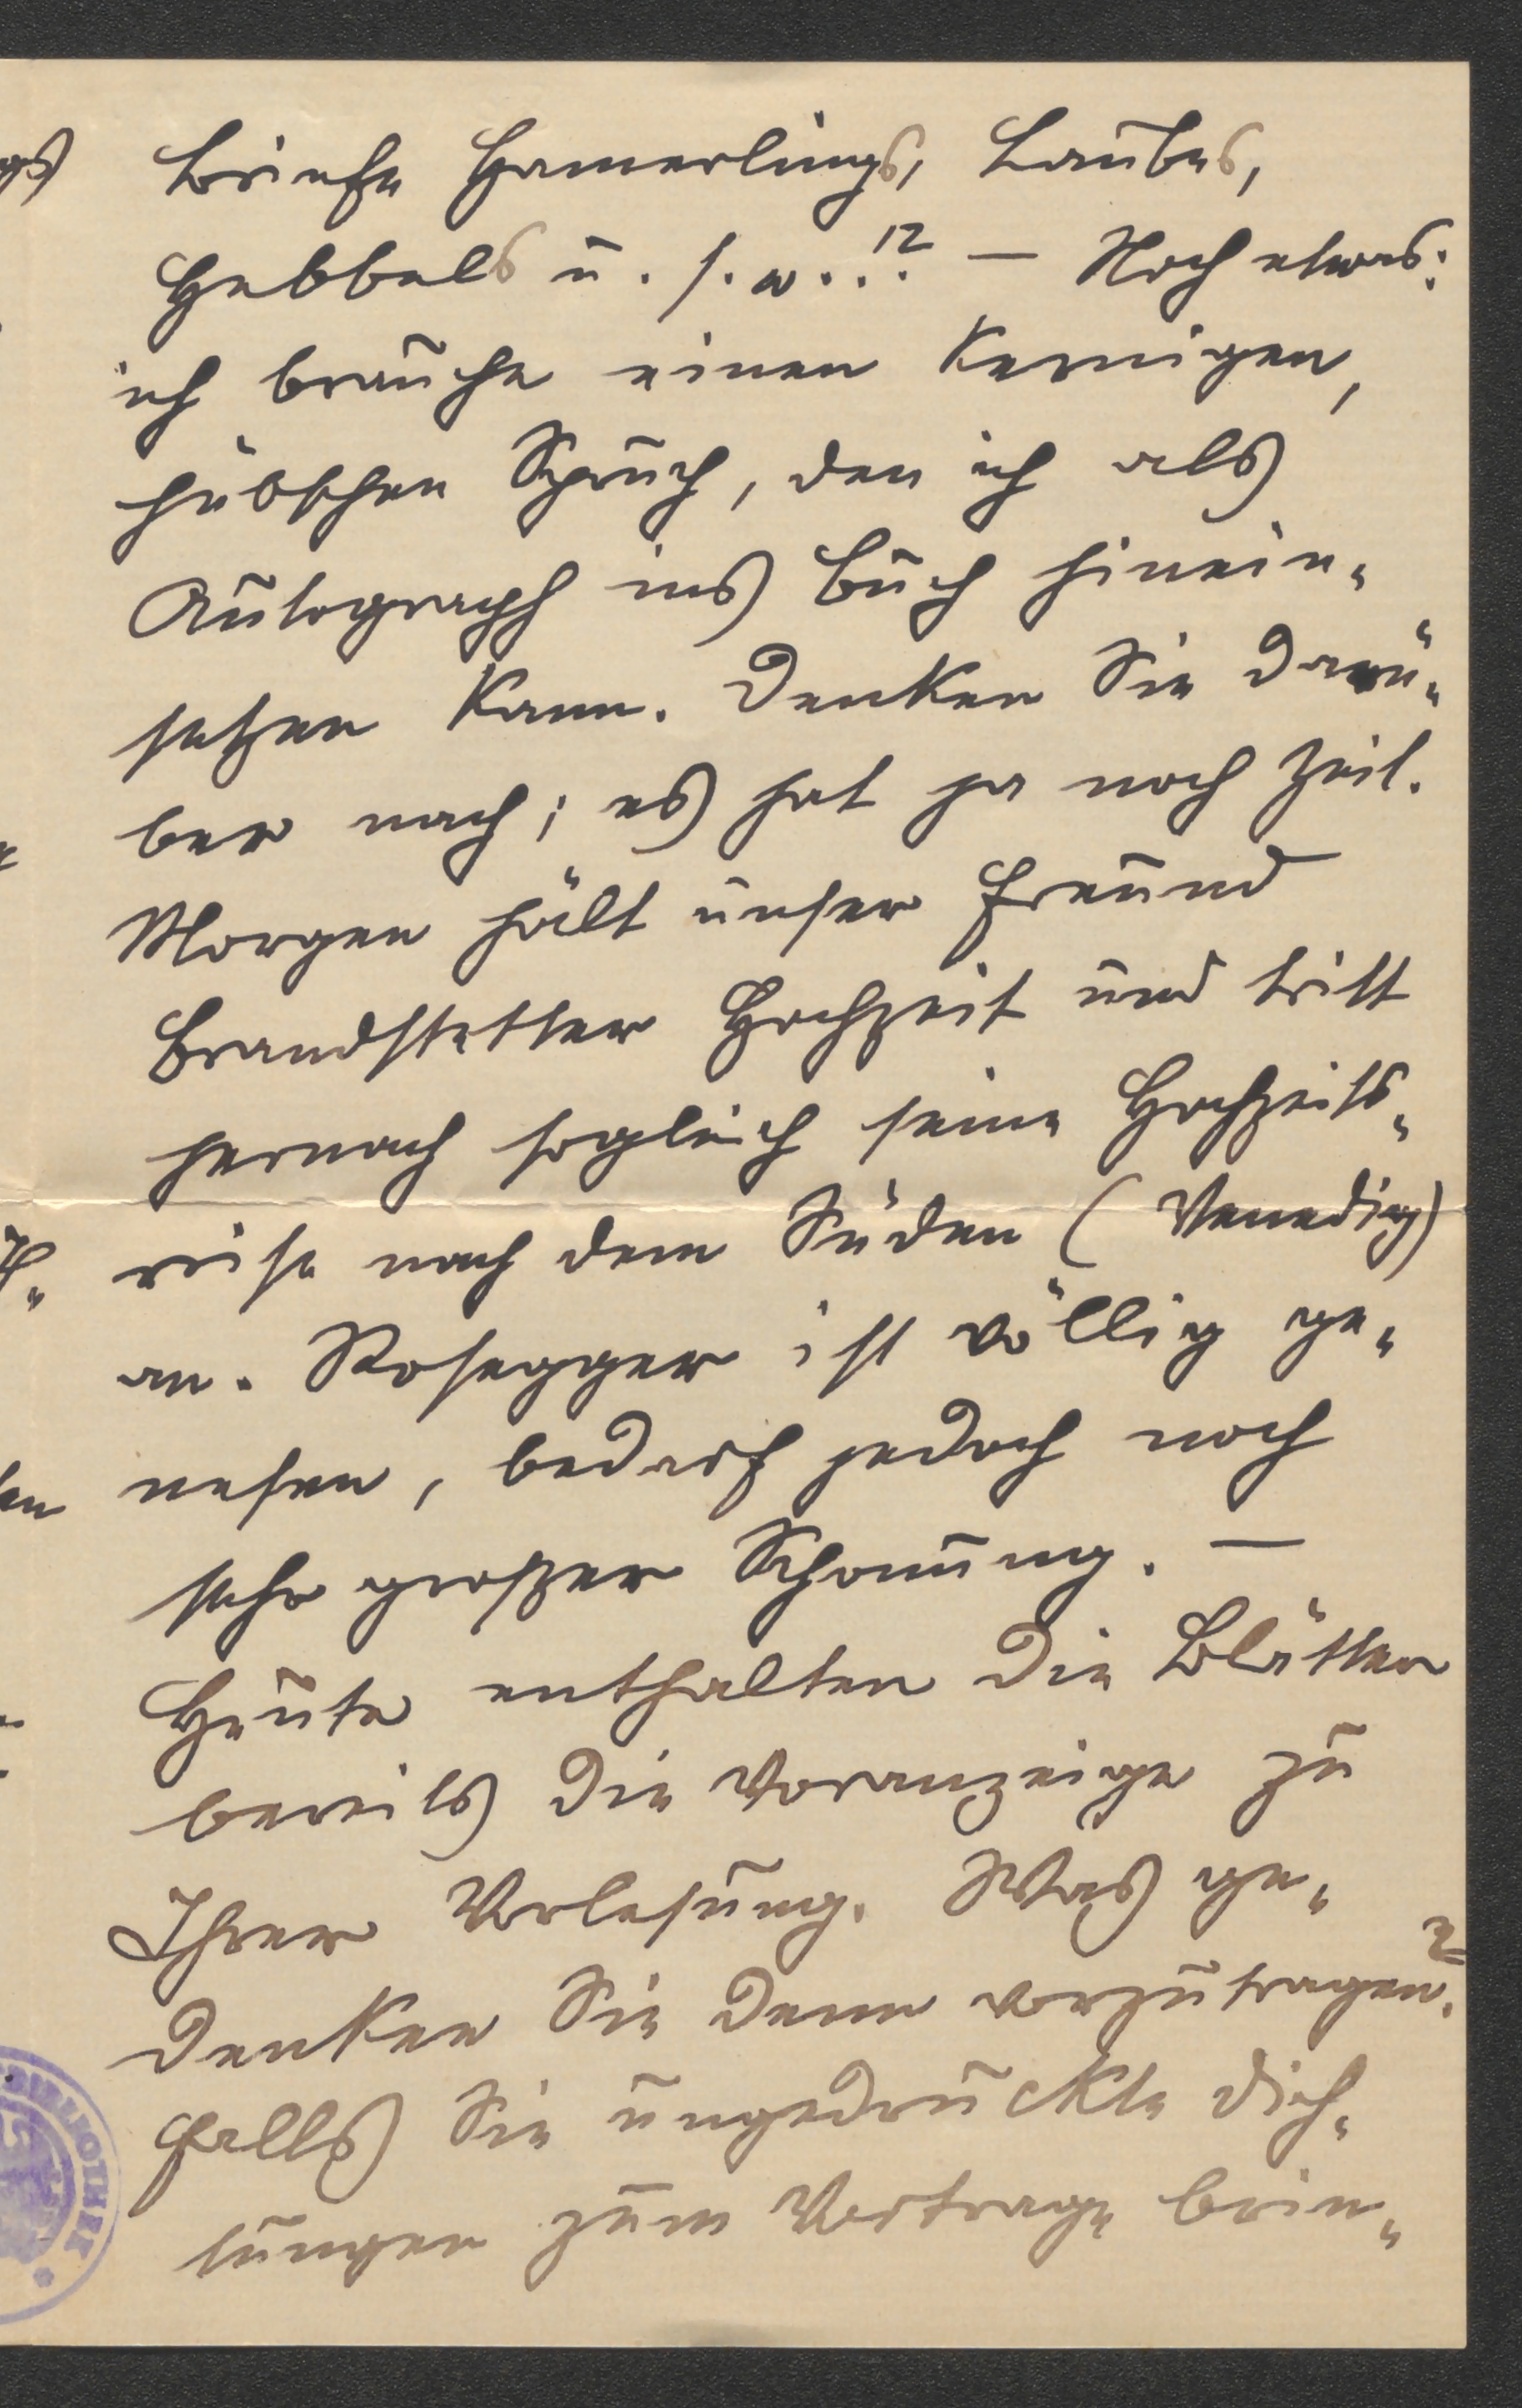 Briefe Hamerlings, Laubes,
Hebbels u. s. w..!? — Noch etwas:
ich brauche einen kernigen,
hübschen Spruch, den ich als
Autograph ins Buch hinein-
setzen kann. Denken Sie darü-
ber nach; es hat ja noch Zeit.
Morgen hält unser Freund
Brandstetter Hochzeit und tritt
hernach sogleich seine Hochzeits-
reise nach dem Süden (Venedig)
an. Rosegger ist völlig ge-
nesen, bedarf jedoch noch
sehr großer Schonung. —
Heute enthalten die Blätter
bereits die Voranzeige zu
Ihrer Vorlesung. Was ge-
denken Sie denn vorzutragen?
Falls Sie ungedruckte Dich-
tungen zum Vortrage brin-